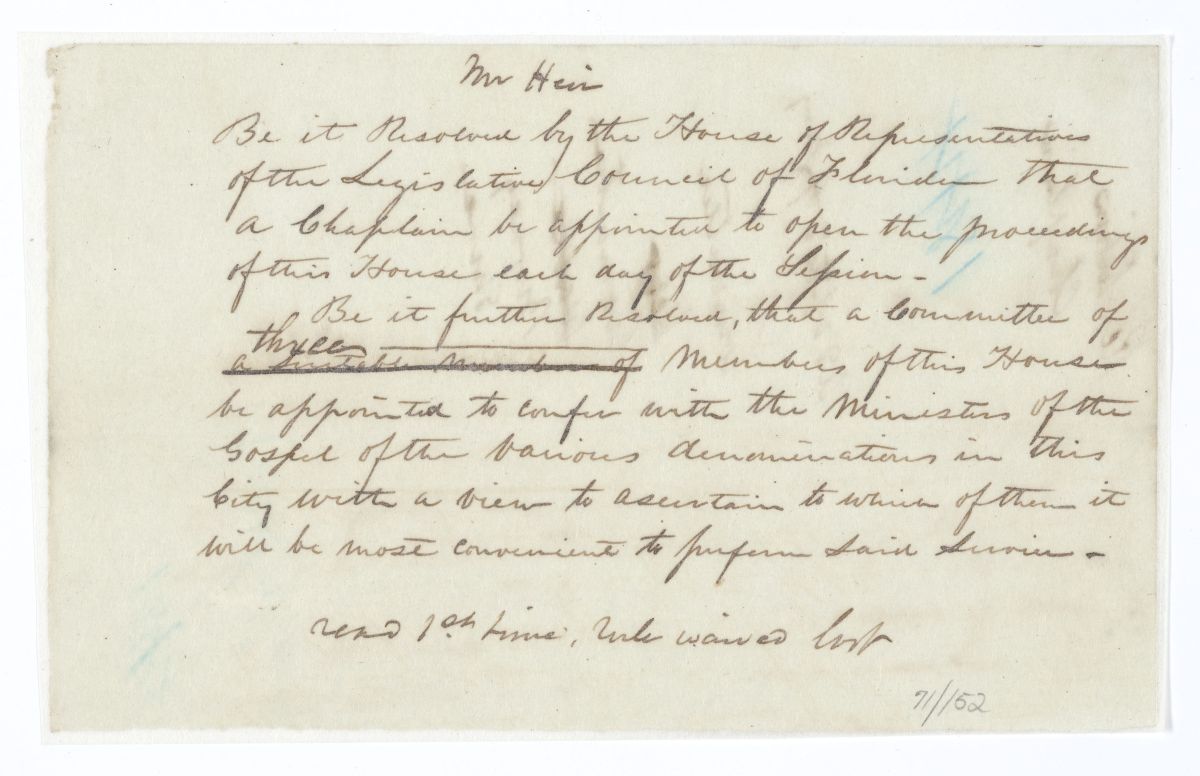 Mr Heir
Be it Resolved by the House of Representatives
of the Legislative Council of Florida that
a Chaplain be appointed to open the proceedings
of this House each day of the Session -
Be it further Resolved, that a Committee of
three
a suitable number of Members of this House
be appointed to confer with the Ministers of the
Gospel of the various denominations in this
City with a view to ascertain to which of them it
will be most convenient to perform said service -
read 1st time, rule waived Lost
71/152